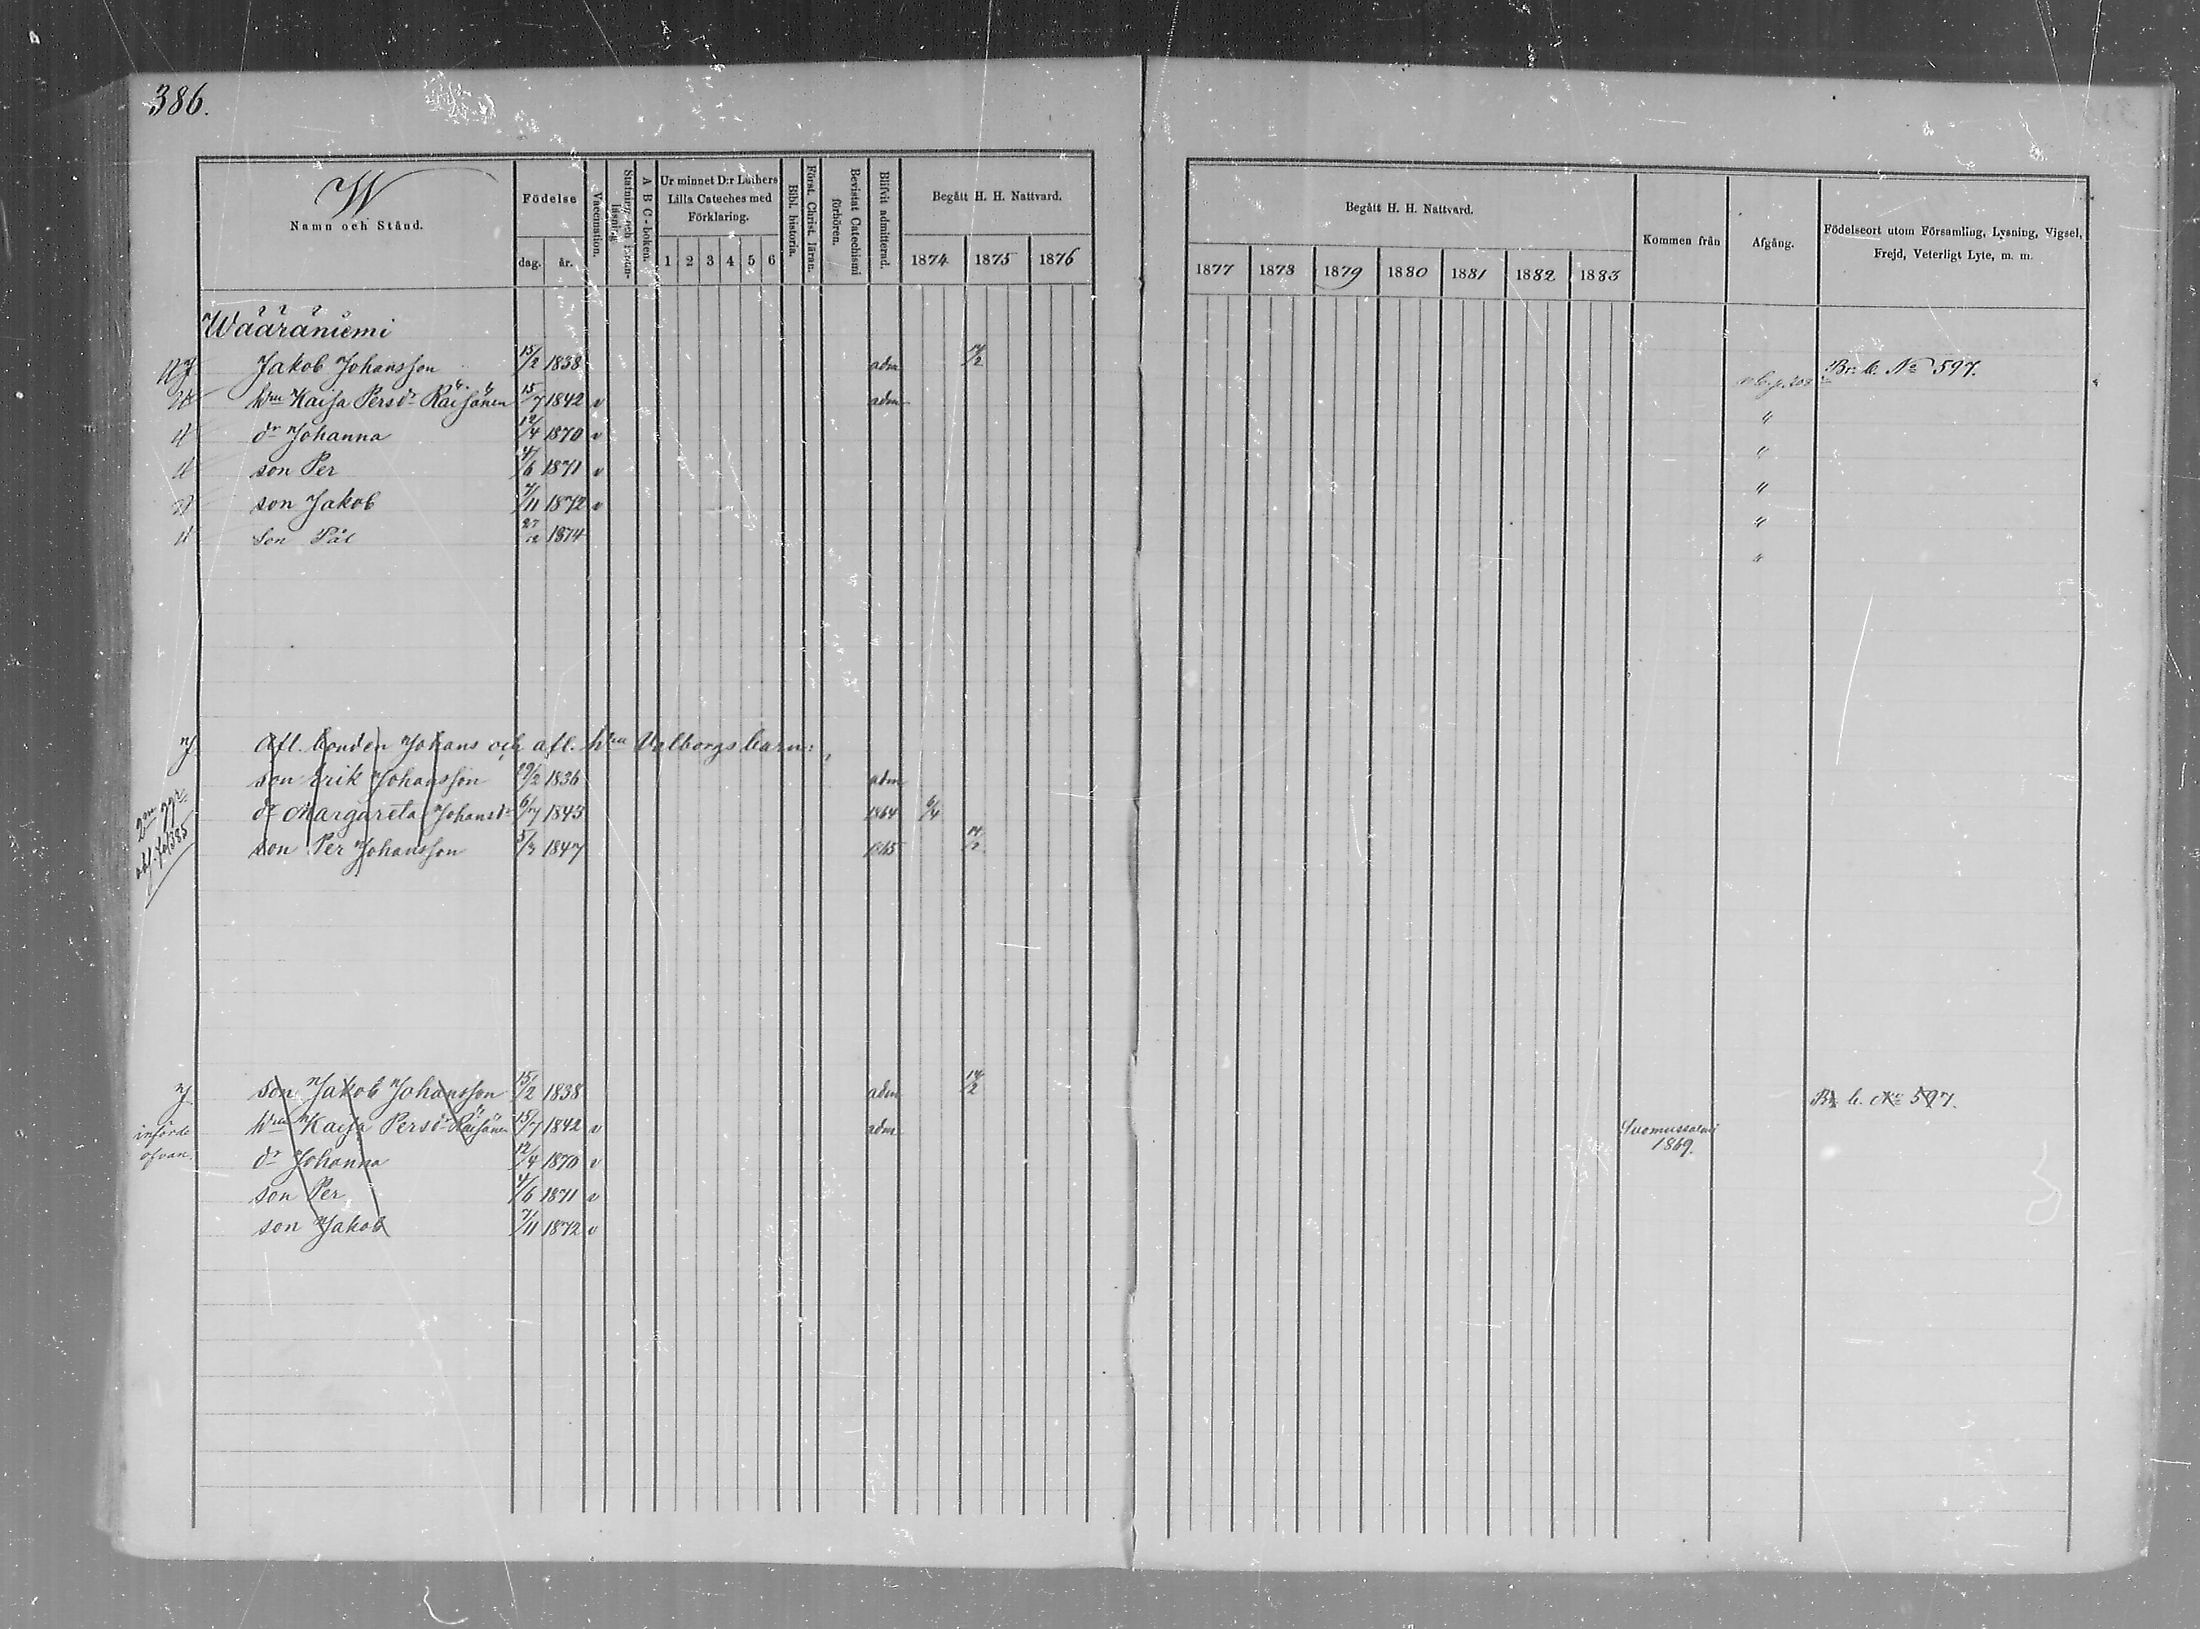 386.
W
Namn och Stånd.
Födelse
dag. år.
Vaccination.
Stafning och Innanläsning.
A B C-boken.
Ur minnet D:r Luthers Lilla Cateches med Förklaring.
1 2 3 4 5 6
Bibl. historia.
Först. Christ. läran.
Bevistat Catechismi förhören.
Blifvit admitterad.
Begått H. H. Nattvard.
1874 1875 1876
Begått H. H. Nattvard.
1877 1878 1879 1880 1881 1882 1883
Kommen från
Afgång.
Födelseort utom Församling, Lysning, Vigsel, Frejd, Veterligt Lyte, m. m.
Wääräniemi
Jakob Johansson 15/2 1838 adm 14/2 Br. b. No 597.
hru Kaisa Persdr Räisänen 15/7 1842 v adm "
dr Johanna 12/4 1870 v "
son Per 4/6 1871 v "
son Jakob 7/11 1872 v "
son Pål 27/12 1874 "
Afl. bonden Johans och afl. hru Valborgs barn:
son Erik Johansson 29/2 1836 adm
dr Margareta Johansdr 6/7 1843 1864 6/4
son Per Johansson 5/3 1847 1865 14/2
2ne ggr.
385
son Jakob Johansson 15/2 1838 adm 14/2 Br. b. No 597.
hru Kaisa Persdr Räisänen 15/7 1842 v adm Suomussalmi 1869.
införde ofvan.
dr Johanna 12/4 1870 v
son Per 4/6 1871 v
son Jakob 7/11 1872 v